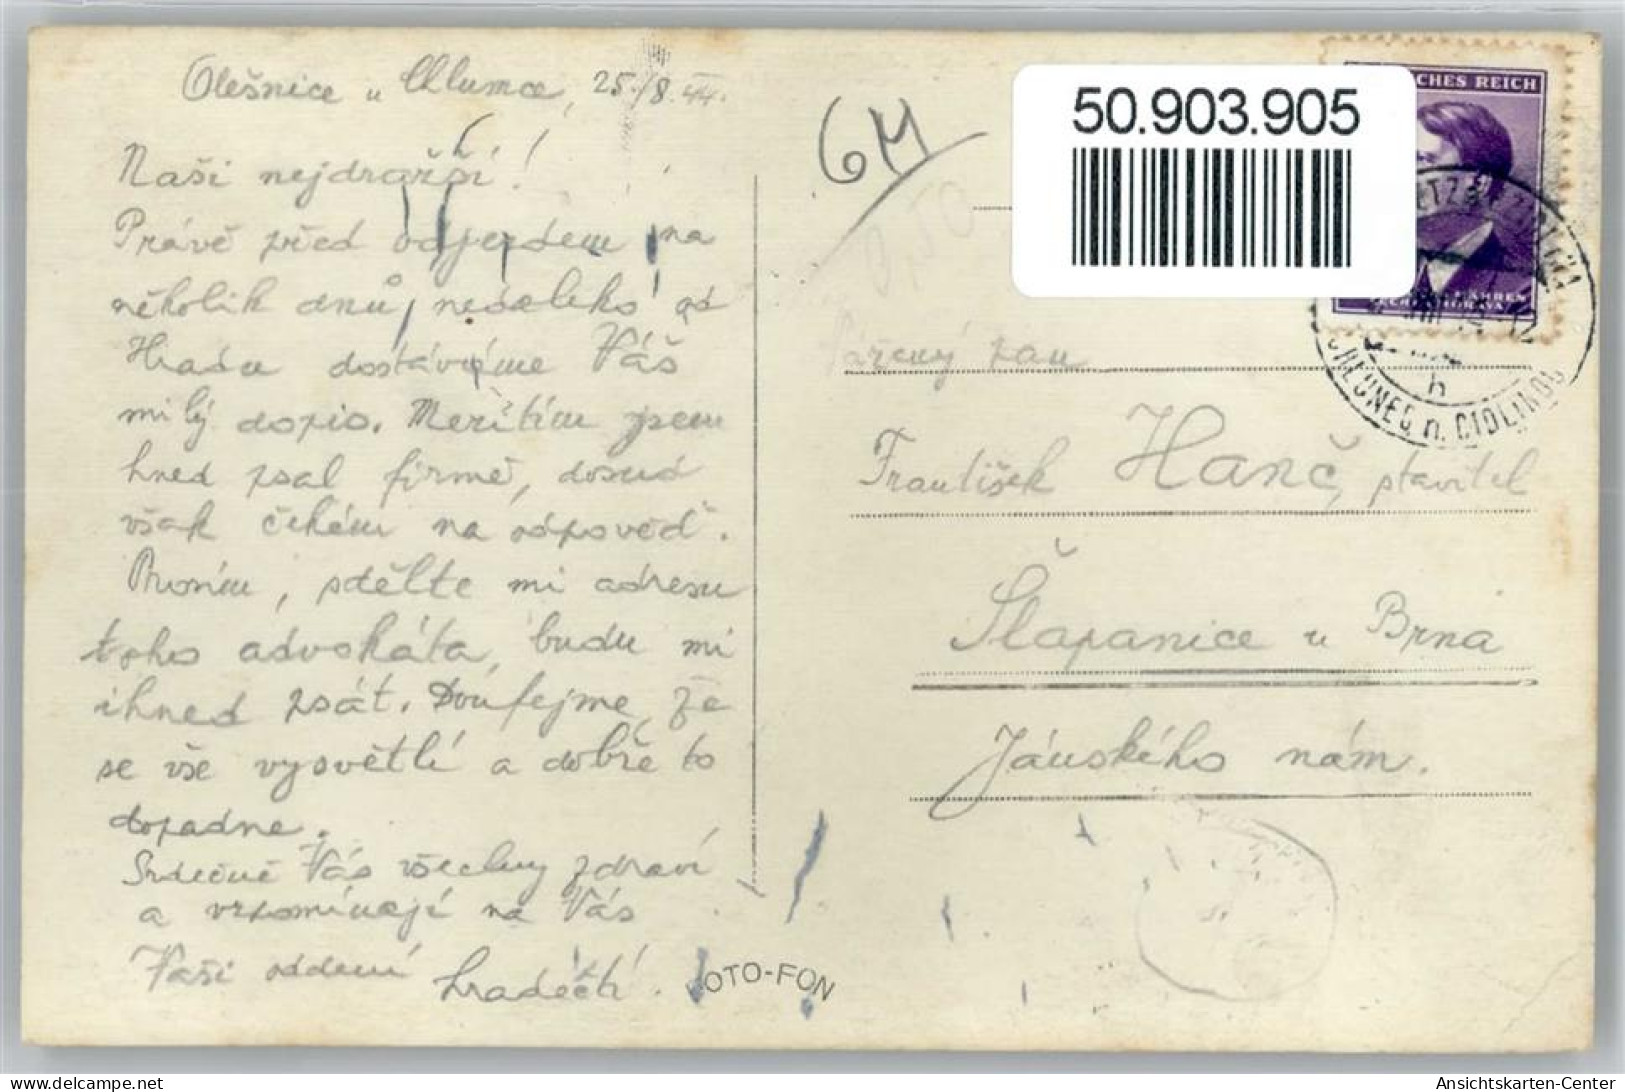 Olešnice u Chlumce, 25./8.44.
Naši nejdražší!
Právě před odjezdem na
několik dnů nedaleko od
Hradu dostáváme Váš
milý dopis. Mezitím jsem
hned psal firmě, dosud
však čekám na odpověď.
Prosím, sdělte mi adresu
toho advokáta, budu mi
ihned psát. Doufejme, že
se vše vysvětlí a dobře to
dopadne.
Srdečně Vás všechny zdraví
a vzpomínají na Vás
Vaši oddaní hradečtí.
OTO-FON
6M
3,50
50.903.905
CHES REICH
CHLUMEC n. CIDLINOU
b
Vážený pan
František Hanč, stavitel
Šlapanice u Brna
Jánského nám.
delcampe.net
Ansichtskarten-Center